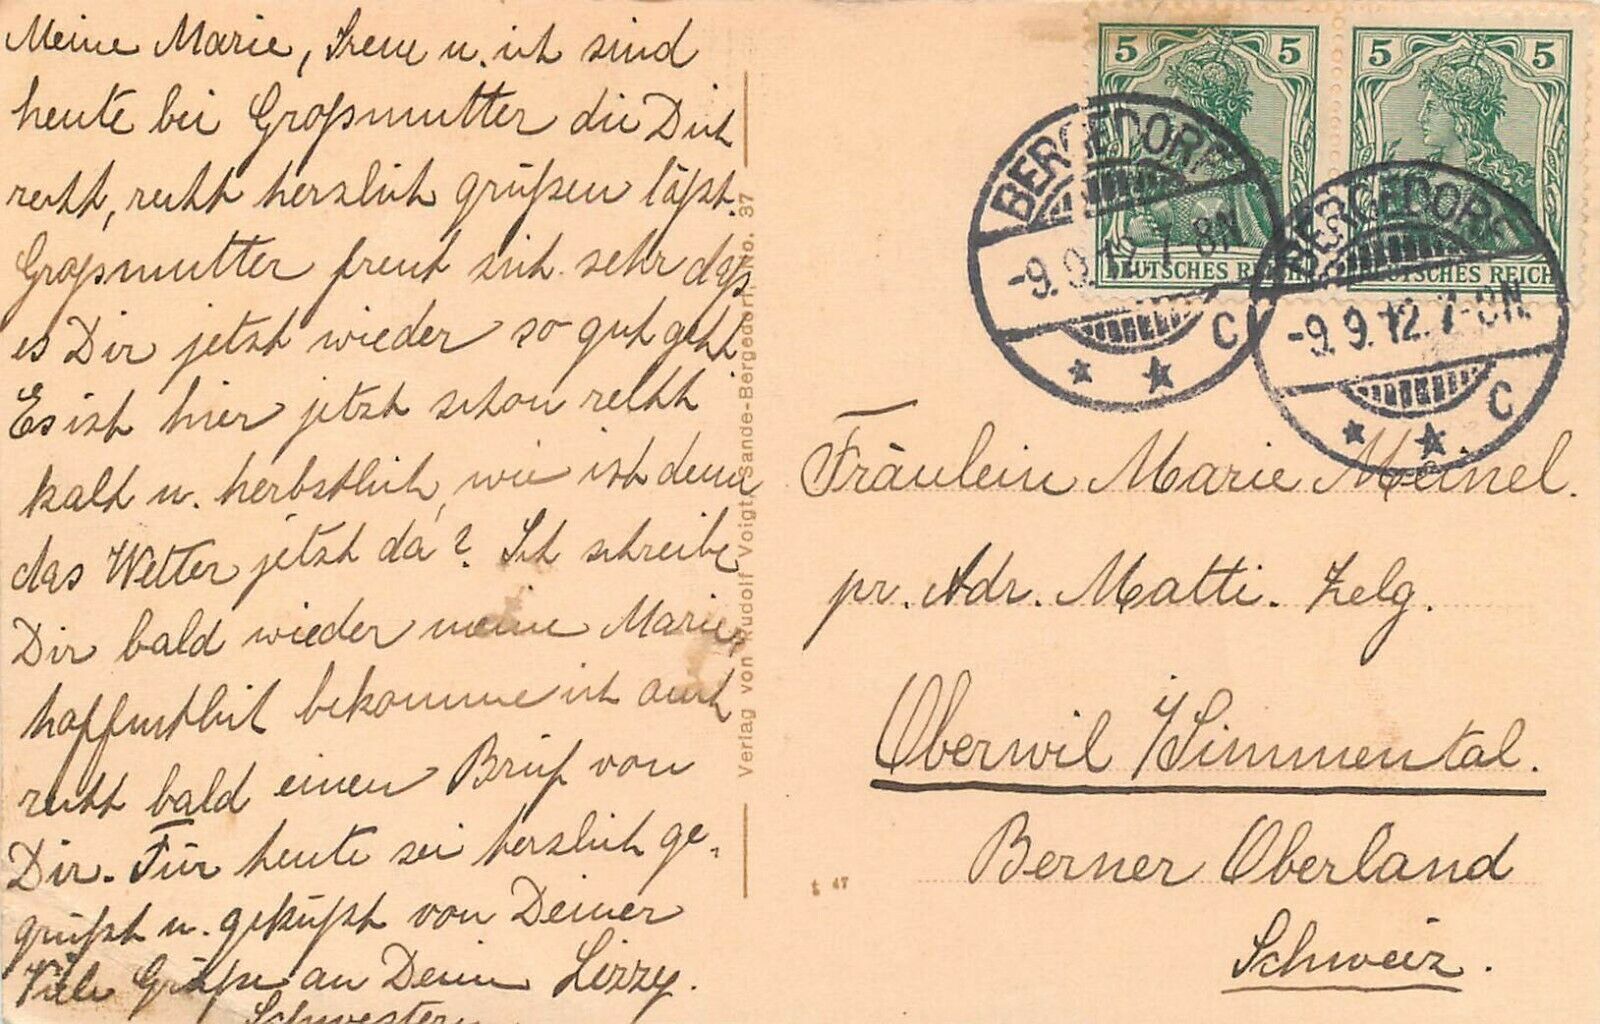 Meine Marie, Irene u. ich sind
heute bei Großmutter die Dich
recht, recht herzlich grüßen läßt.
Großmutter freut sich sehr daß
es Dir jetzt wieder so gut geht.
Es ist hier jetzt schon recht
kalt u. herbstlich, wie ist denn
das Wetter jetzt da? Ich schreibe
Dir bald wieder meine Marie,
hoffentlich bekomme ich auch
recht bald einen Brief von
Dir. Für heute sei herzlich ge-
grüßt u. geküßt von Deiner
Viele Grüße an Deine Lizzy.
Schwestern
Verlag von Rudolf Voigt, Sande-Bergedorf, No. 37
5 5
DEUTSCHES REICH
5 5
DEUTSCHES REICH
BERGEDORF
-9.9.12. 7-8N
C
BERGEDORF
-9.9.12. 7-8N
C
Fräulein Marie Meinel.
pr. Adr. Matti. Zelg.
Oberwil i/Simmental.
Berner Oberland
Schweiz.
t 47